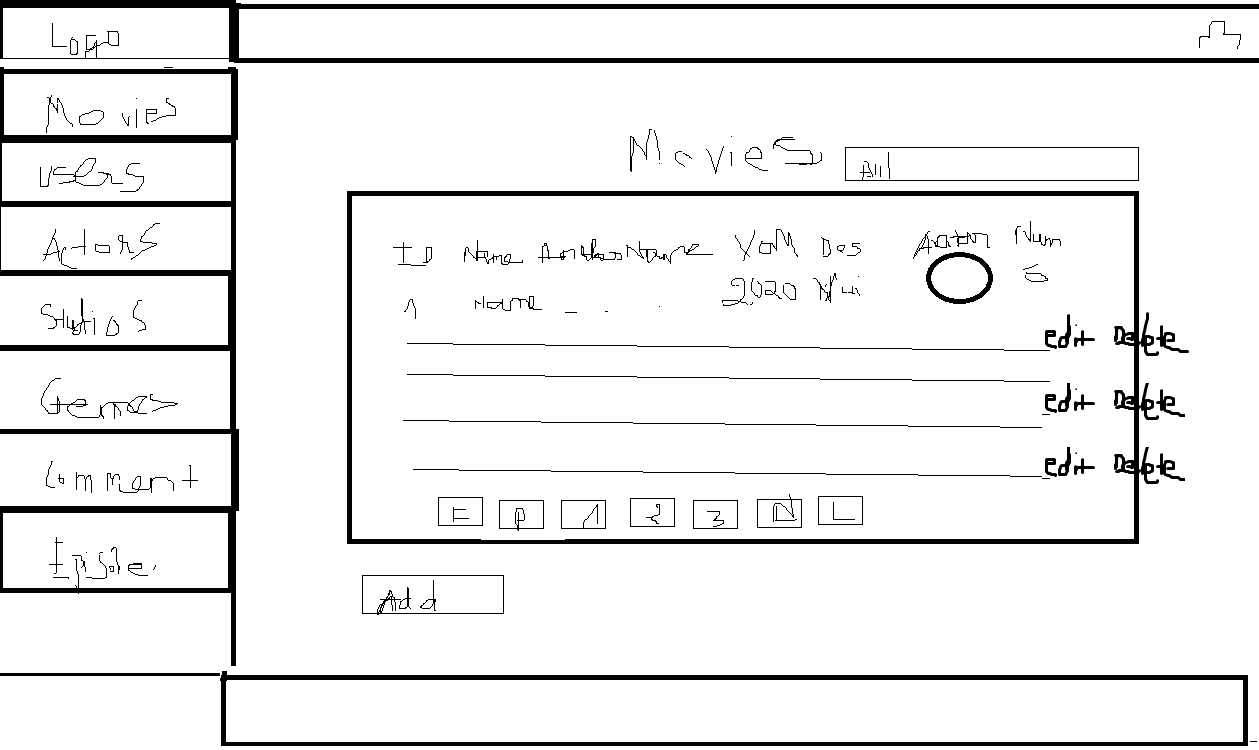 Logo
Movies
users
Actors
Studios
Genres
Comment
Episode.
Movies
All
ID Name AnotherName YoM Des Avatar Num
1 Name _ . . 2020 6
edit Delete
edit Delete
edit Delete
F P 1 2 3 N L
Add